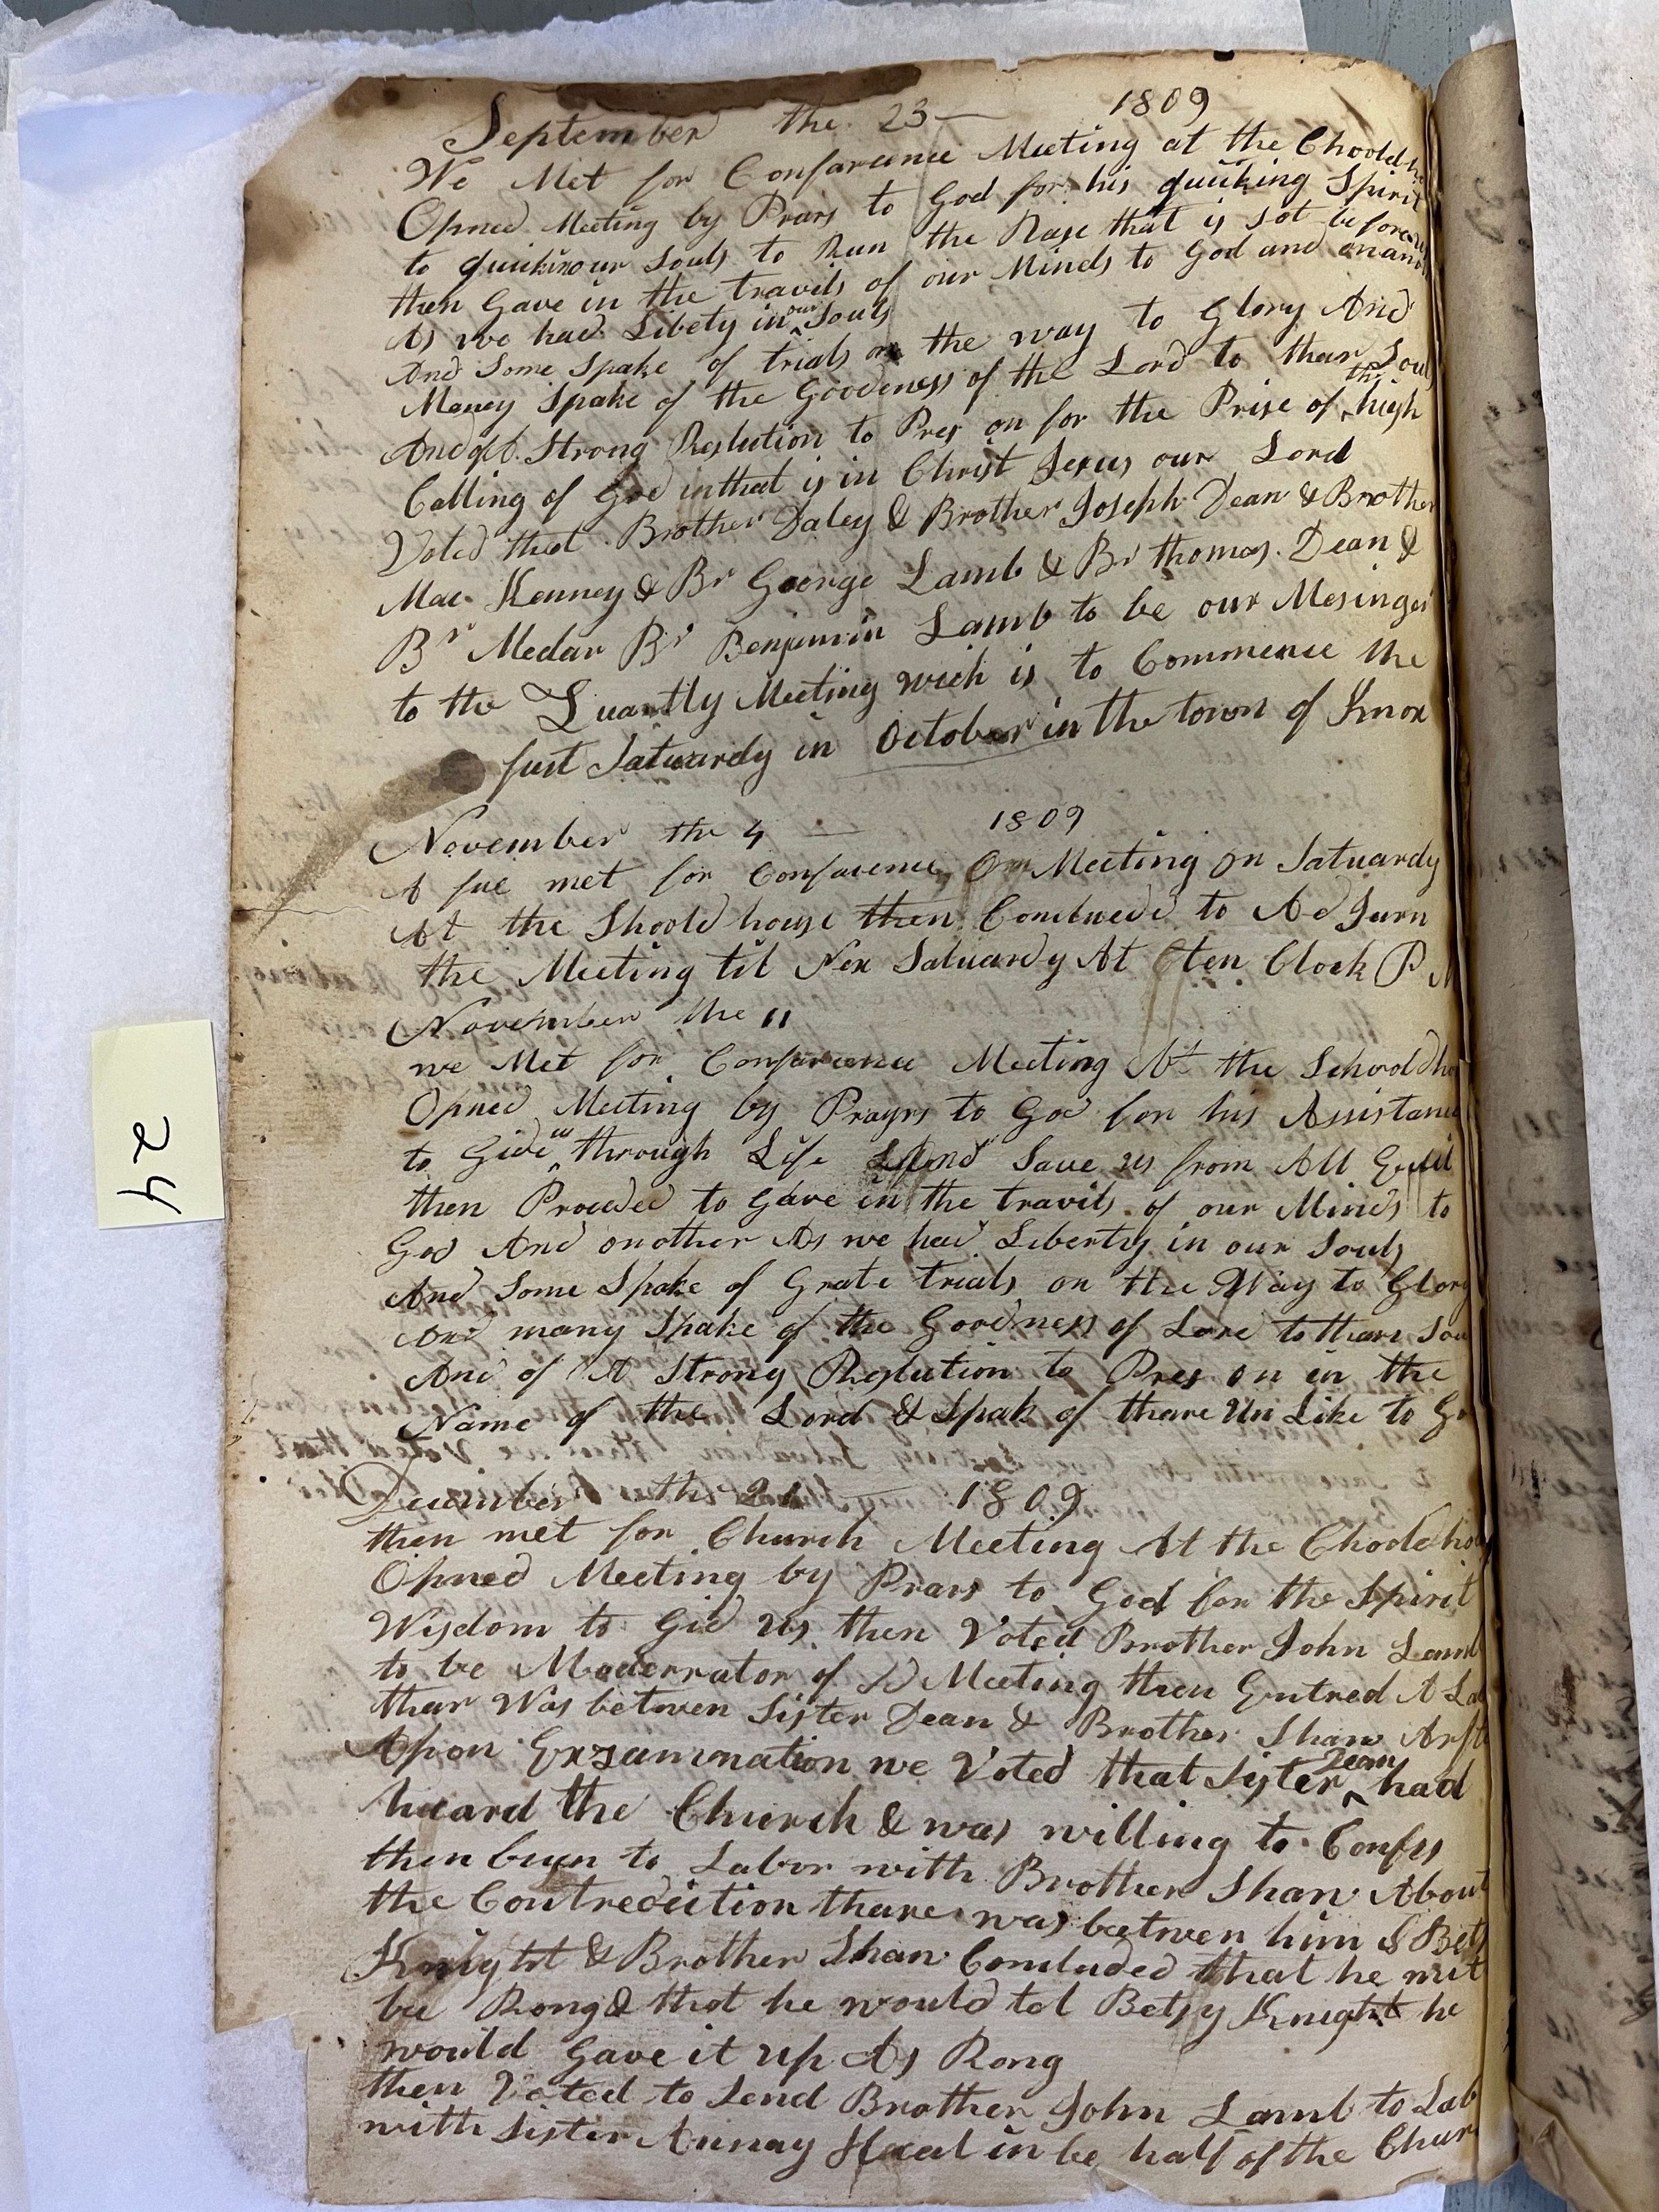 September the 23 — 1809
We Met for Confarence Meeting at the Choold
Opned Meeting by Prars to God for his quicking Spirit
to quickin our Souls to Run the Rase that is sot before us
then Gave in the travils of our Minds to God and
As we had Libety in our Souls
And Some Spake of trials on the way to Glory And
Maney Spake of the Goodeness of the Lord to thar Souls
And of A Strong Reslution to Pres on for the Prise of the high
Calling of God in that is in Christ Jesus our Lord
Voted that Brother Daley & Brother Joseph Dean & Brother
Mac Kenney & Br George Lamb & Br thomas Dean &
Br Medar Br Benjamin Lamb to be our Mesinger
to the Quartly Meeting wich is to Commence the
fust Satuardy in October in the town of Knox
November the 4 — 1809
A fue met for Confarence Meeting On Satuardy
At the Shoold house then Concluded to Ad Jurn
the Meeting til Nex Satuardy At ten Clock P M
November the 11
we Met for Confarence Meeting At the Schoold ho
Opned Meeting by Prayrs to God for his Assistance
to Gide us through Life And Save us from All Evil
then Proceded to Gave in the travils of our Minds to
God And onother As we had Liberty in our Souls
And Some Spake of Grate trials on the Way to Glory
And many Spake of the Goodness of Lord to thare Sou
And of A Strong Reslution to Pres on in the
Name of the Lord & Spak of thare Un Like to Go
December the 1809
then met for Church Meeting At the Choold hou
Opned Meeting by Prars to God for the Spirit
Wisdom to Gid Us then Voted Brother John Lamb
to be Moderrator of Meeting then Entred A La
thar Was betwen Sister Dean & Brother Shaw Arft
Apon Exzamination we Voted that Sister Dean had
heard the Church & was willing to Confes
then begn to Labor with Brother Shaw About
the Contredition thare was between him & Bets
Knight & Brother Shaw Concluded that he mit
be Rong & that he would tel Betsy Knight he
would Gave it up As Rong
then Voted to Send Brother John Lamb to Lab
with Sister Annay in be half of the Chur
24